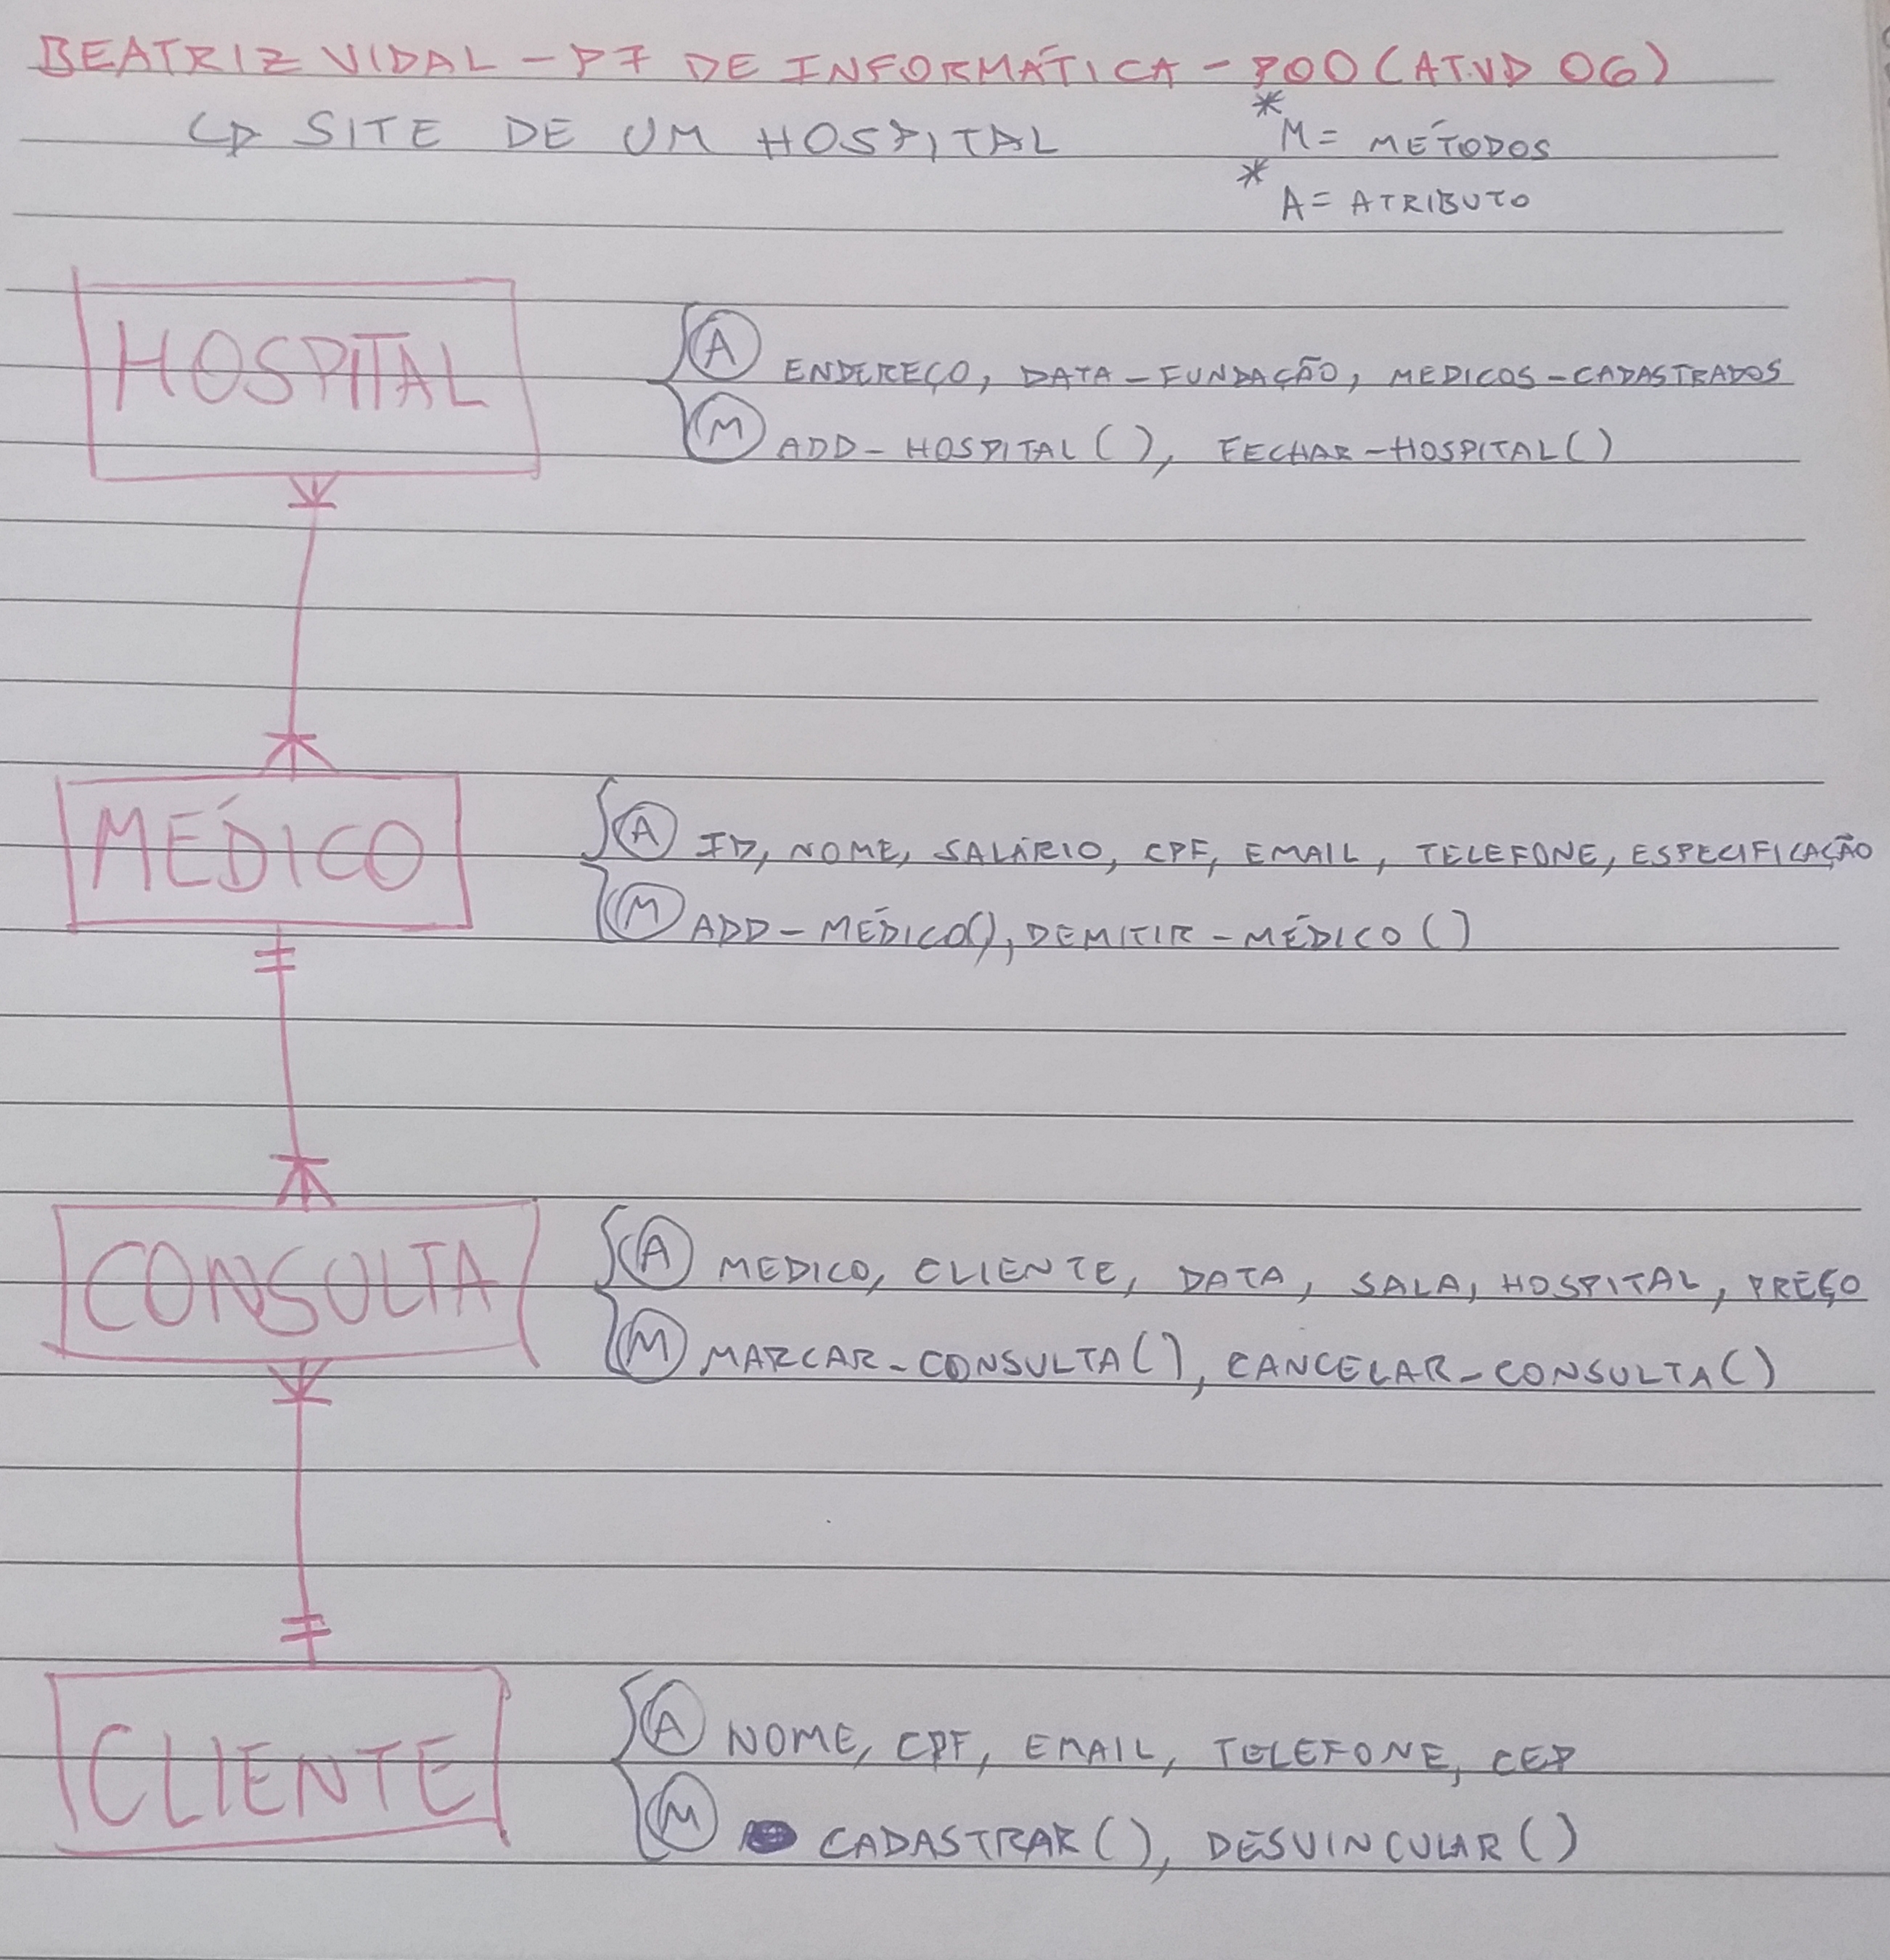 BEATRIZ VIDAL - P7 DE INFORMÁTICA - POO (ATVD 06)
↳ SITE DE UM HOSPITAL
* M = MÉTODOS
* A = ATRIBUTO
HOSPITAL
A ENDEREÇO, DATA-FUNDAÇÃO, MEDICOS-CADASTRADOS
M ADD-HOSPITAL(), FECHAR-HOSPITAL()
MÉDICO
A ID, NOME, SALÁRIO, CPF, EMAIL, TELEFONE, ESPECIFICAÇÃO
M ADD-MÉDICO(), DEMITIR-MÉDICO()
CONSULTA
A MEDICO, CLIENTE, DATA, SALA, HOSPITAL, PREÇO
M MARCAR-CONSULTA(), CANCELAR-CONSULTA()
CLIENTE
A NOME, CPF, EMAIL, TELEFONE, CEP
M CADASTRAR(), DESVINCULAR()